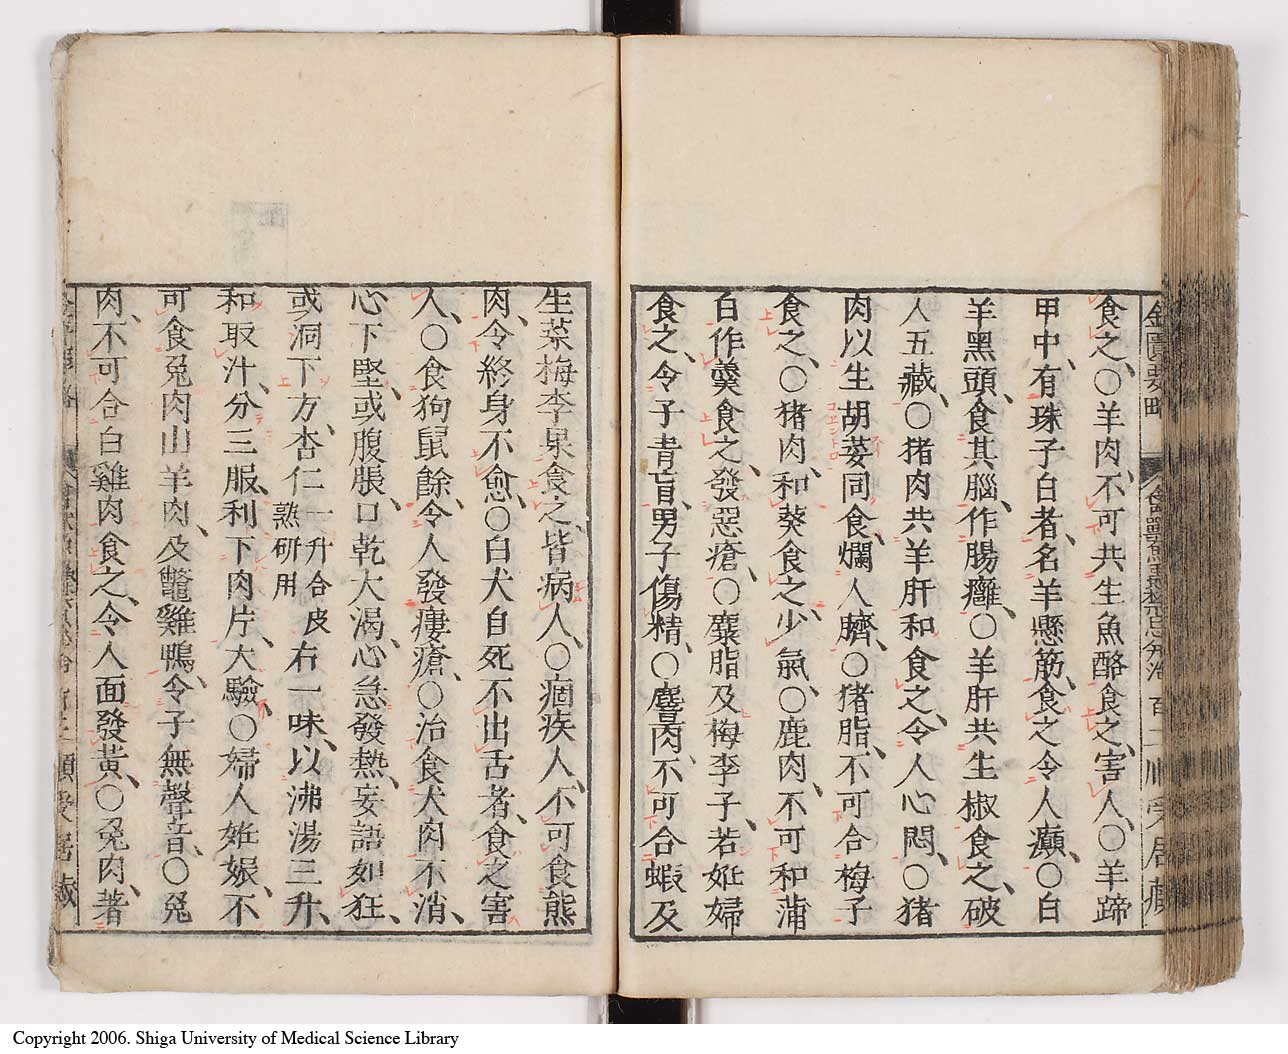 金匱要略
食之、○羊肉、不可共生魚酪食之、害人、○羊蹄
甲中、有珠子白者、名羊懸筋、食之令人癲、○白
羊黑頭、食其腦、作腸癰、○羊肝共生椒食之、破
人五藏、○猪肉共羊肝和食之、令人心悶、○猪
肉以生胡荽同食、爛人臍、○猪脂、不可合梅子
食之、○猪肉、和葵食之、少氣、○鹿肉、不可和蒲
白作羹食之、發惡瘡、○麋脂及梅李子、若妊婦
食之、令子青盲、男子傷精、○麞肉、不可合蝦及
生菜梅李果食之、皆病人、○痼疾人、不可食熊
肉、令終身不愈、○白犬自死不出舌者、食之害
人、○食狗鼠餘、令人發瘻瘡、○治食犬肉不消、
心下堅、或腹脹、口乾大渴、心急發熱、妄語如狂、
或洞下方、杏仁一升合皮熟研用右一味、以沸湯三升、
和取汁、分三服、利下肉片、大驗、○婦人妊娠、不
可食兔肉山羊肉、及鼈雞鴨、令子無聲音、○兔
肉、不可合白雞肉食之、令人面發黃、○兔肉、著
Copyright 2006. Shiga University of Medical Science Library